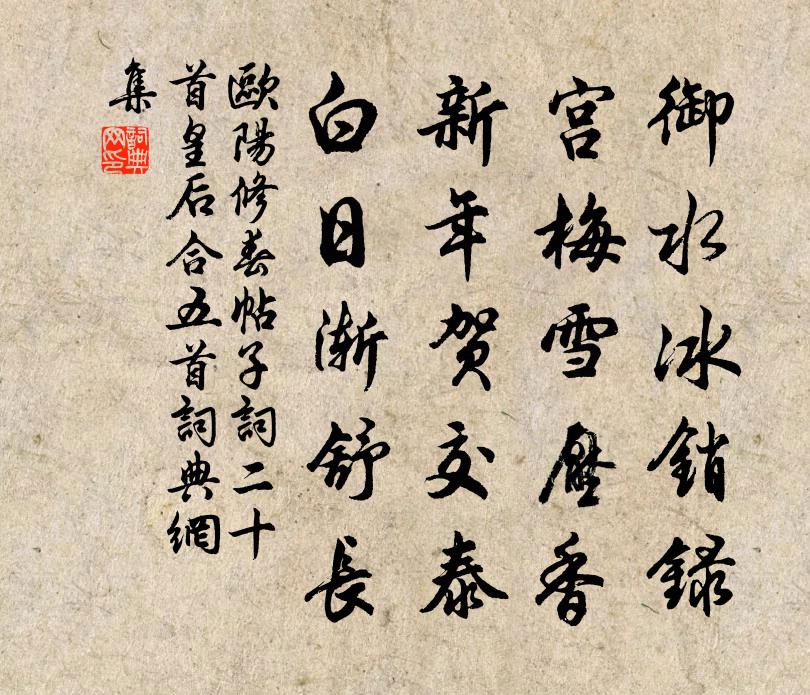 御水冰銷録
宫梅雪壓香
新年贺交泰
白日漸舒長
歐陽修春帖子詞二十
首皇后合五首詞典網
集
詞典网印